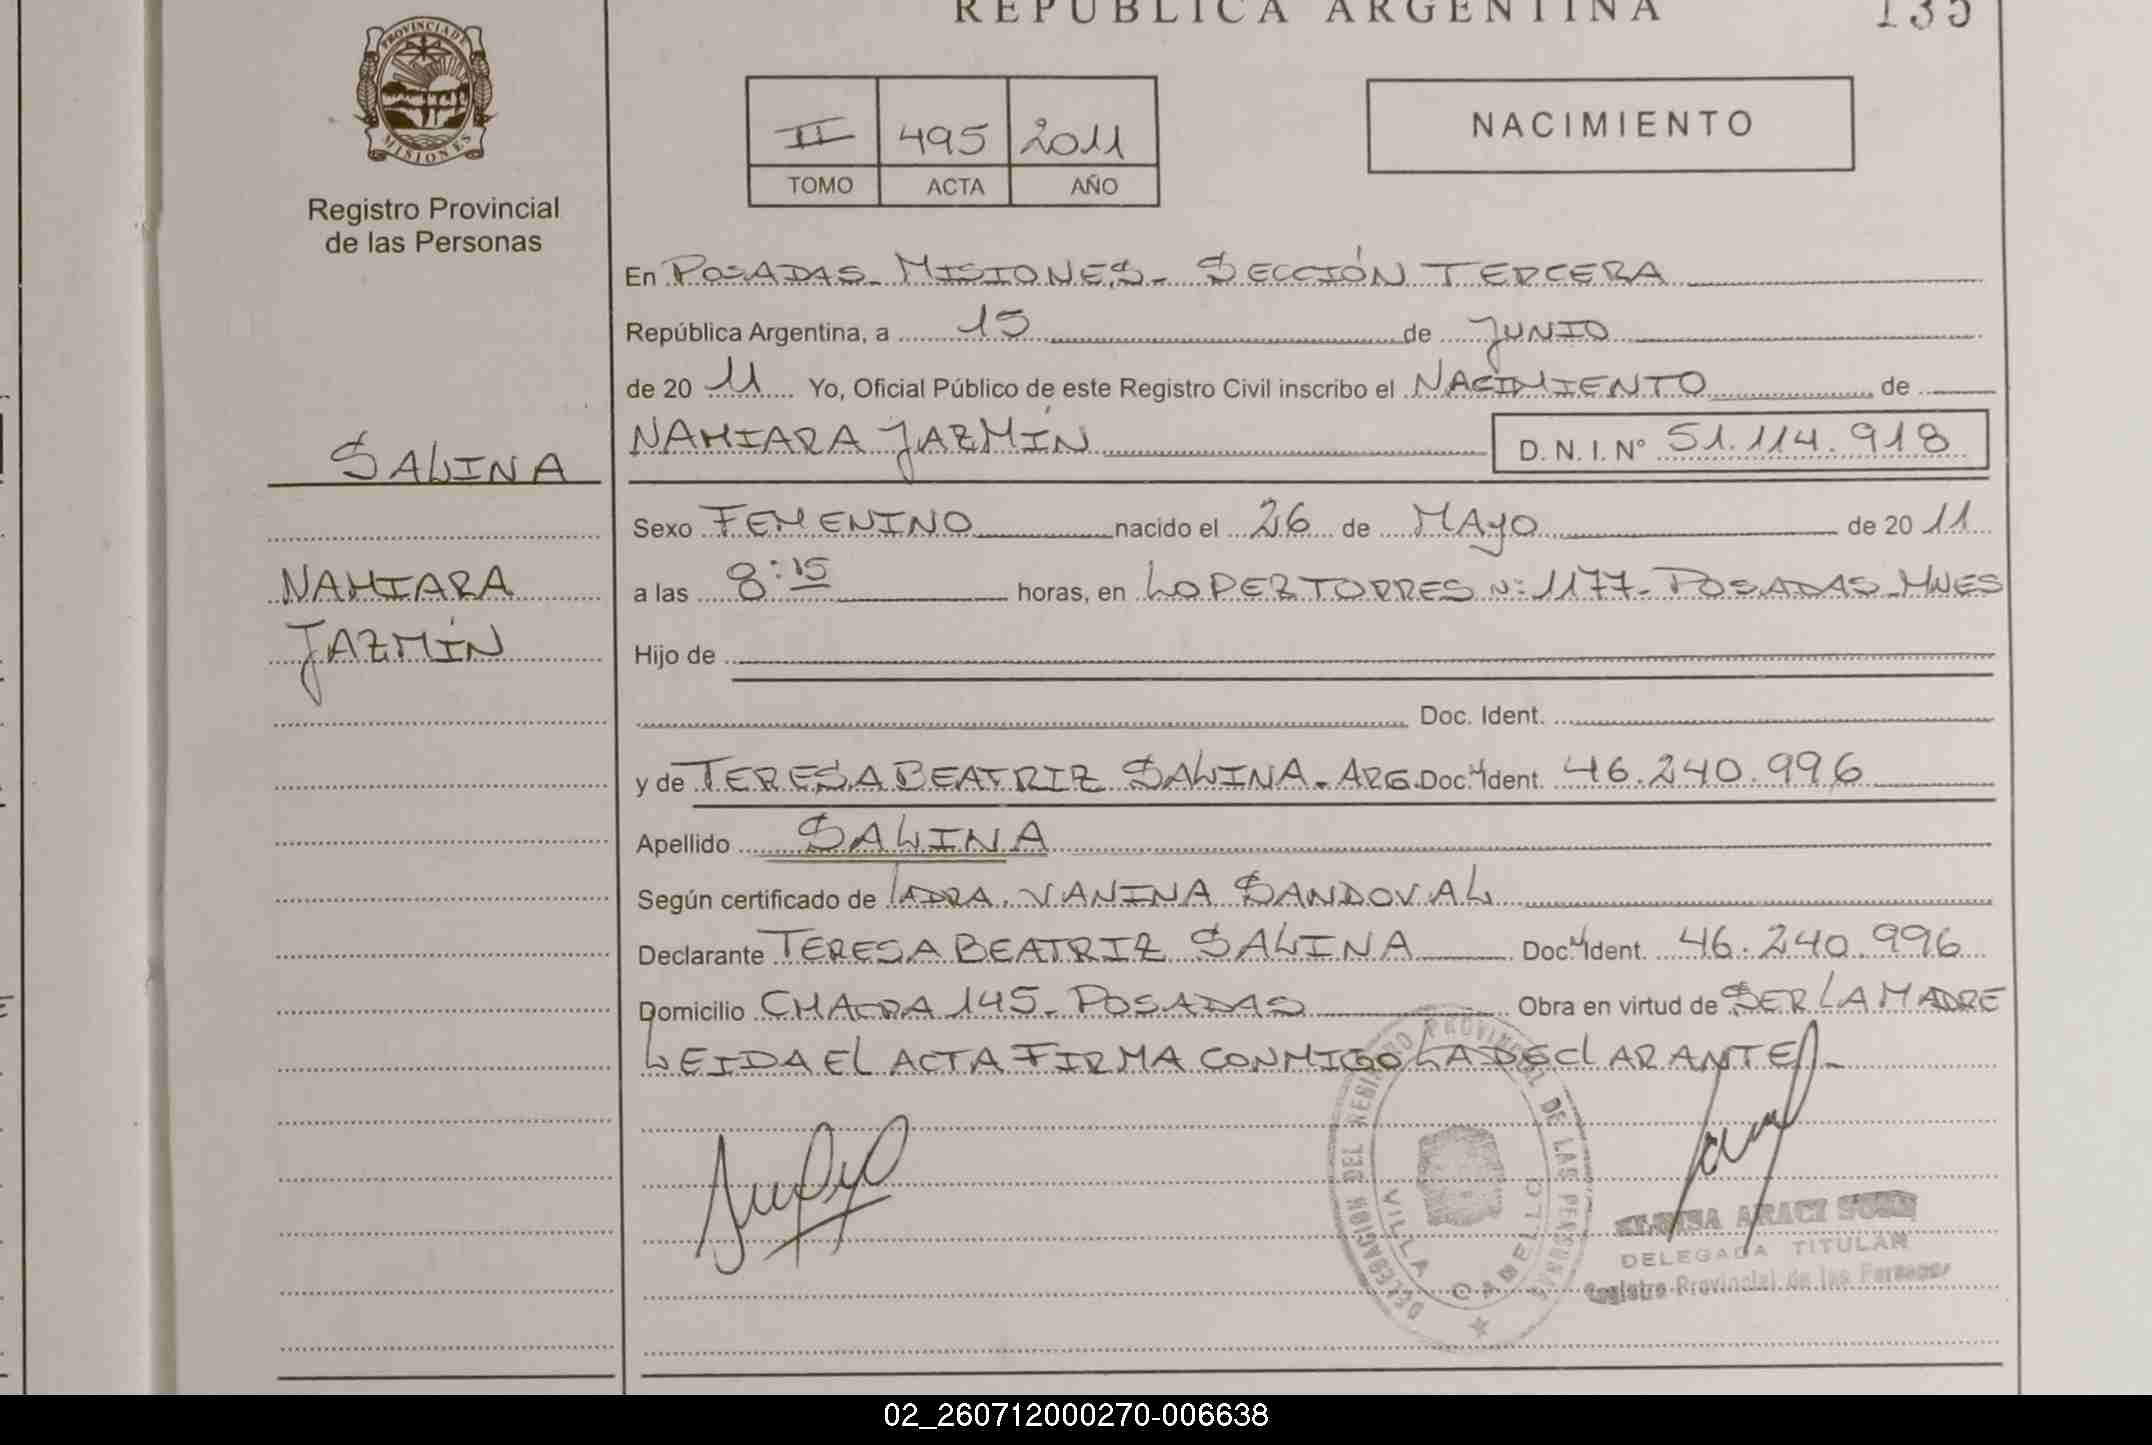 REPUBLICA ARGENTINA 135
PROVINCIA DE
MISIONES
Registro Provincial
de las Personas
II 495 2011
TOMO ACTA AÑO
NACIMIENTO
En POSADAS - MISIONES - SECCIÓN TERCERA
República Argentina, a 15 de JUNIO
de 20 11 Yo, Oficial Público de este Registro Civil inscribo el NACIMIENTO de
NAHIARA JAZMÍN D. N. I. N° 51.114.918
SALINA
Sexo FEMENINO nacido el 26 de MAYO de 20 11
NAHIARA
JAZMÍN
a las 8:15 horas, en LOPEZ TORRES N: 1177 - POSADAS - MNES
Hijo de
Doc. Ident.
y de TERESA BEATRIZ SALINA - ARG. Doc. Ident. 46.240.996
Apellido SALINA
Según certificado de LA DRA. VANINA SANDOVAL
Declarante TERESA BEATRIZ SALINA Doc. Ident. 46.240.996
Domicilio CHACRA 145 - POSADAS Obra en virtud de SER LA MADRE
LEIDA EL ACTA FIRMA CONMIGO LA DECLARANTE -
DELEGACION DEL REGISTRO PROVINCIAL DE LAS PERSONAS
VILLA CABELLO
ARACI
DELEGADA TITULAR
Registro Provincial de las Personas
02_260712000270-006638